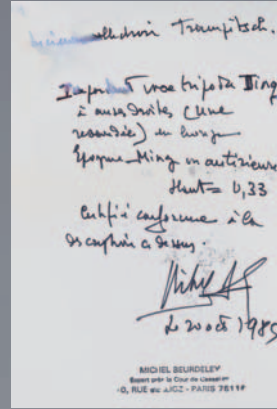 Ancienne collection Trampitsch.
Important vase tripode Ding
à anses droites (une
ressoudée) en bronze
Époque Ming ou antérieure
Haut = 0,33
Certifié conforme à la
description ci-dessus.
Le 20 oct 1989
MICHEL BEURDELEY
Expert près la Cour de Cassation
RUE PARIS 75116